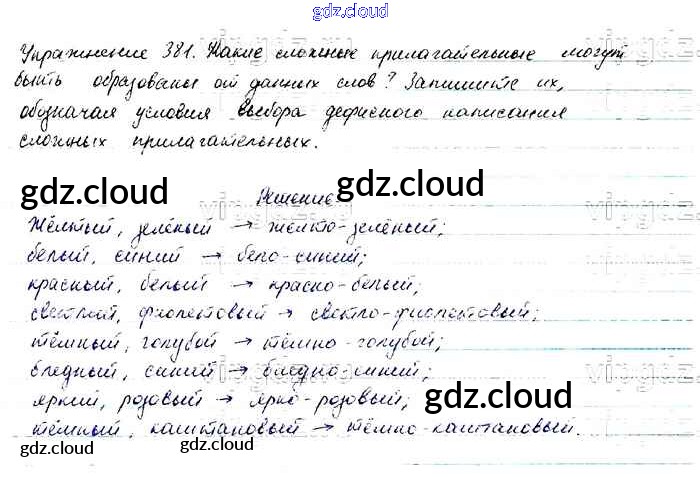 gdz.cloud
Упражнение 381. Какие сложные прилагательные могут
быть образованы от данных слов? Запишите их,
обозначая условия выбора дефисного написания
сложных прилагательных.
gdz.cloud
gdz.cloud
Решение
Жёлтый, зелёный → жёлто-зелёный;
белый, синий → бело-синий;
красный, белый → красно-белый;
светлый, фиолетовый → светло-фиолетовый;
тёмный, голубой → тёмно-голубой;
бледный, синий → бледно-синий;
яркий, розовый → ярко-розовый;
gdz.cloud
тёмный, каштановый → тёмно-каштановый.
gdz.cloud
gdz.cloud